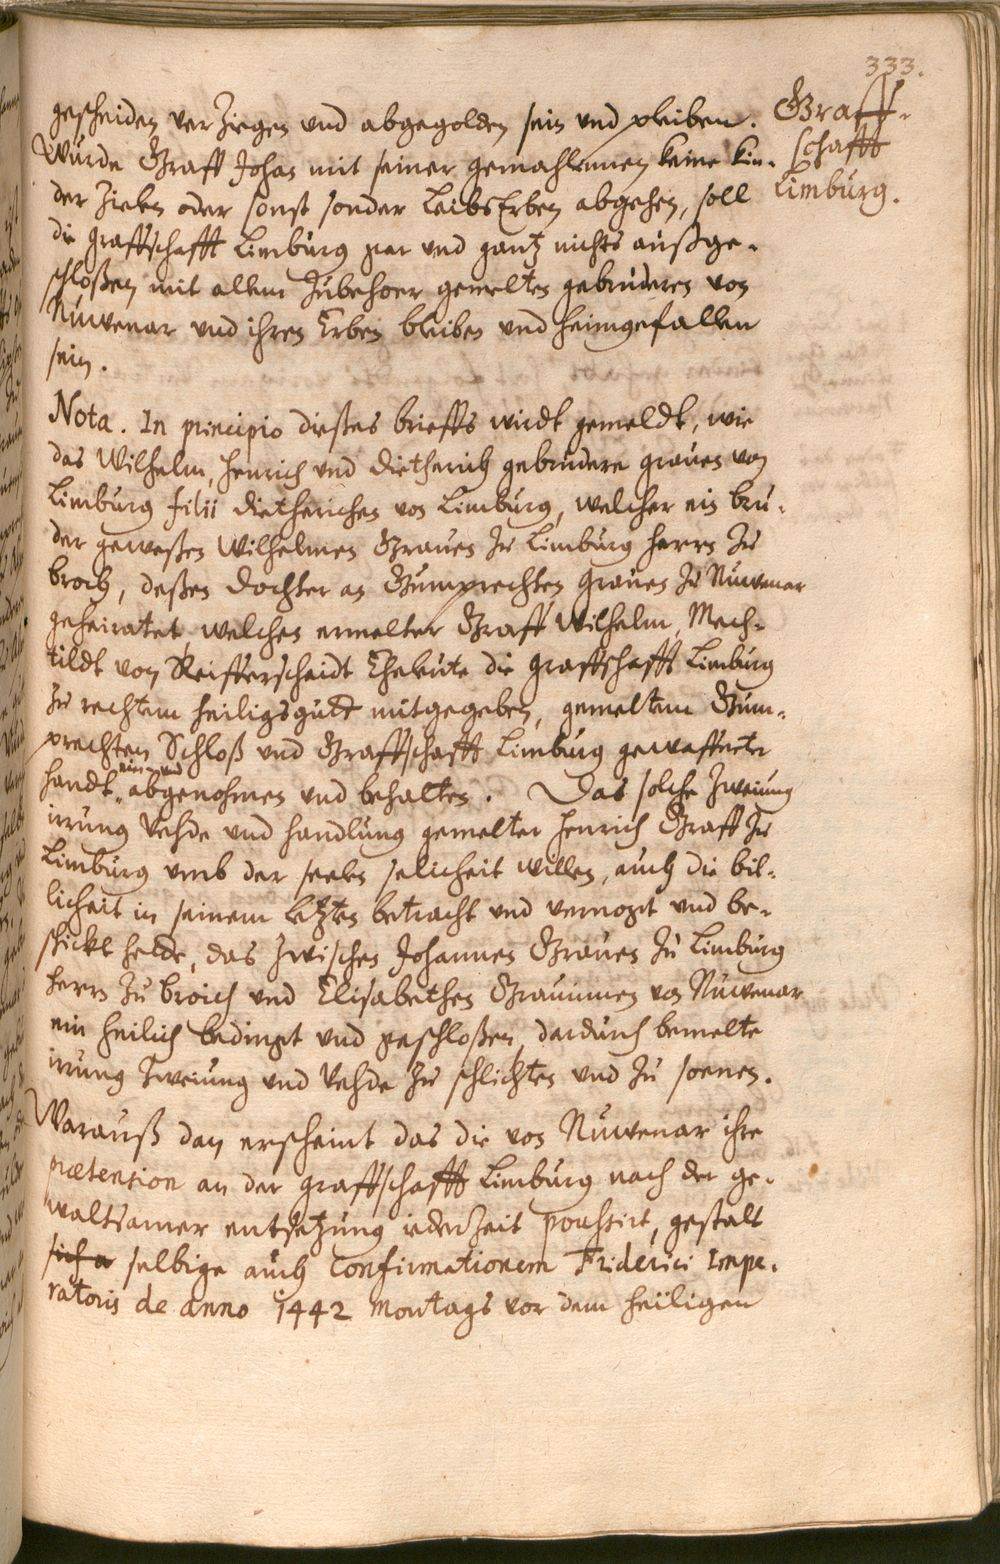 333.
Graff-
schafft
Limburg.
gescheiden verziegen und abgegolden sein und pleiben.
Wurde Graff Johan mit seiner gemahlinnen keine kin-
der zielen oder sonst sonder LeibsErben abgehen, soll
die graffschafft Limburg gar und gantz nichts außge-
schloßen mit allem Zubehoer gemelten gebruderen von
Nuwenar und ihren Erben bleiben und heimgefallen
sein.
Nota. In principio dießes brieffs wirdt gemeldt, wie
das Wilhelm, Henrich und Dietherich gebrudere grauen von
Limburg filii Dietherichen von Limburg, welcher ein bru-
der geweßen Wilhelmen Grauen zu Limburg Herrn zu
broch, deßen dochter an Gumprechten grauen zu Nuwenar
geheiratet, welchen ermelter Graff Wilhelm, Mech-
tildt von Reifferscheidt Eheleute die graffschafft Limburg
zu rechtem heiligsgutt mitgegeben, gemeltem Gum-
prechten Schloß und Graffschafft Limburg gewaffneter
handt ein und abgenohmen und behalten. Das solche Zweiung
irrung Vehde und handlung gemelter Henrich Graff zu
Limburg umb der seelen selicheit willen, auch die bil-
licheit in seinem letzten betracht und vernopt und be-
schickt hette, das zwischen Johannen Grauen zu Limburg
Herrn zu broich und Elisabethen Grauinnen von Nuwenar
ein heilich bedingt und geschloßen, dardurch bemelte
irrung Zweiung und Vehde zu schlichten und zu soenen.
Warauß dan erscheint das die von Nuwenar ihre
prætension an der graffschafft Limburg nach der ge-
waltsamer entsetzung iederzeit poussirt, gestalt
sich a selbige auch Confirmationem Friderici Impe-
ratoris de anno 1442 Montags vor dem heiligen